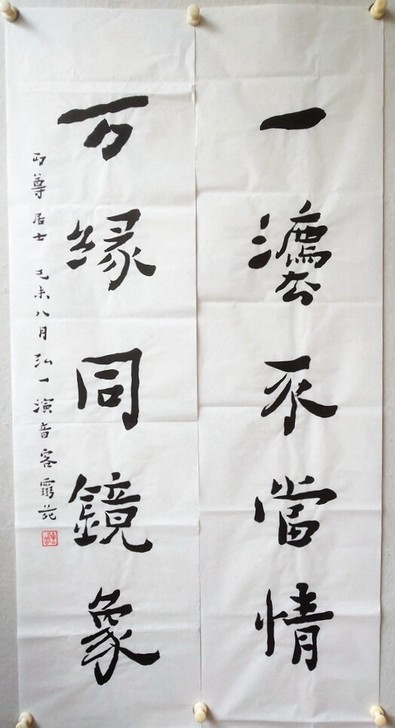 一灋不當情
万緣同鏡象
丏尊居士 己未八月弘一演音客靈苑